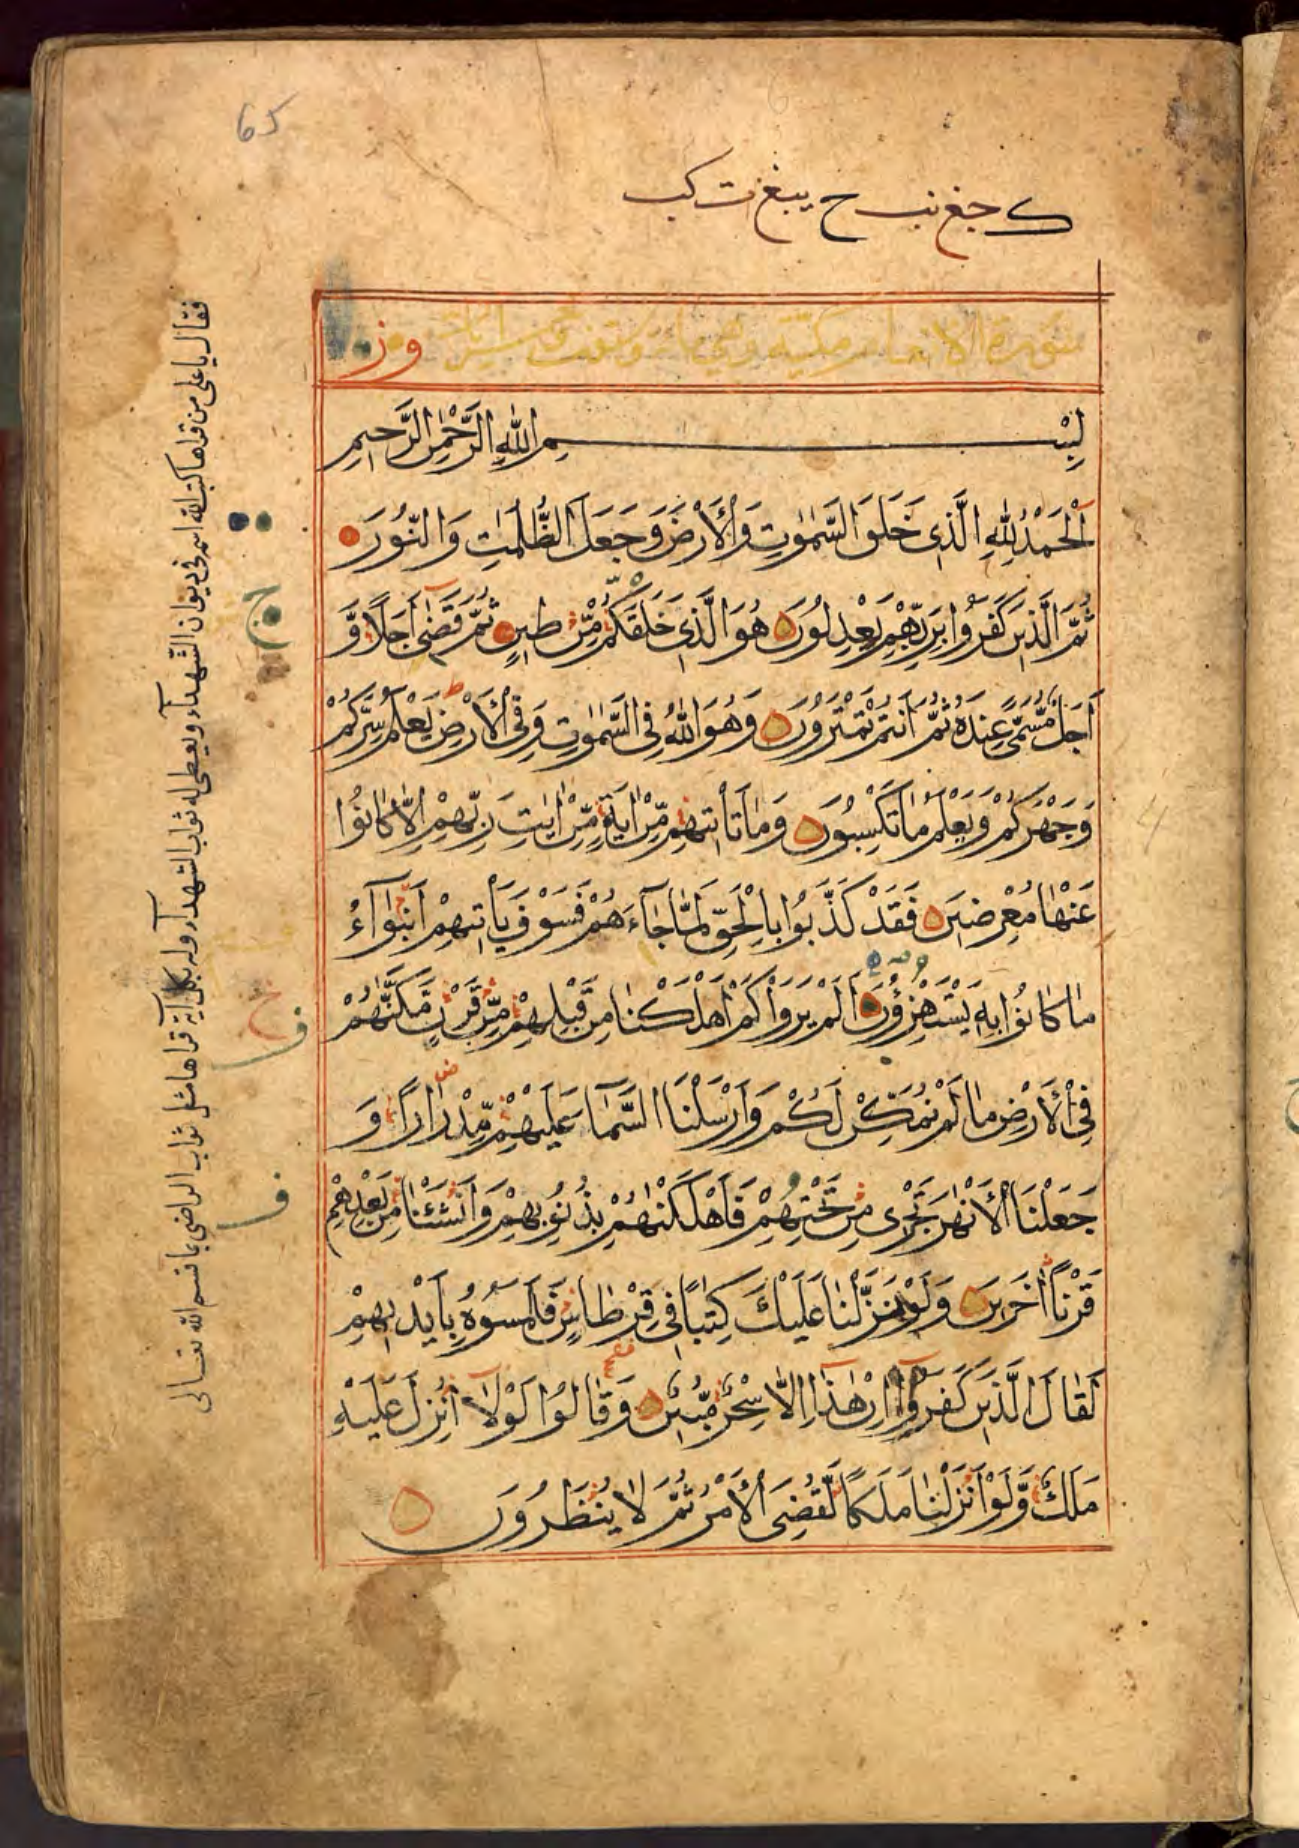 65
سورة الانعام مكية وهي مائة وستون وخمس ايات
بِسْمِ اللّٰهِ الرَّحْمٰنِ الرَّحِيمِ
اَلْحَمْدُ لِلّٰهِ الَّذِى خَلَقَ السَّمٰوٰتِ وَالْاَرْضَ وَجَعَلَ الظُّلُمٰتِ وَالنُّورَ
ثُمَّ الَّذِينَ كَفَرُوا بِرَبِّهِمْ يَعْدِلُونَ هُوَ الَّذِى خَلَقَكُمْ مِّنْ طِينٍ ثُمَّ قَضٰى اَجَلًا وَّ
اَجَلٌ مُّسَمًّى عِنْدَهُ ثُمَّ اَنْتُمْ تَمْتَرُونَ وَهُوَ اللّٰهُ فِى السَّمٰوٰتِ وَفِى الْاَرْضِ يَعْلَمُ سِرَّكُمْ
وَجَهْرَكُمْ وَيَعْلَمُ مَا تَكْسِبُونَ وَمَا تَاْتِيهِمْ مِّنْ اٰيَةٍ مِّنْ اٰيٰتِ رَبِّهِمْ اِلَّا كَانُوا
عَنْهَا مُعْرِضِينَ فَقَدْ كَذَّبُوا بِالْحَقِّ لَمَّا جَآءَهُمْ فَسَوْفَ يَاْتِيهِمْ اَنْبٰٓؤُا
مَا كَانُوا بِهِ يَسْتَهْزِؤُنَ اَلَمْ يَرَوْا كَمْ اَهْلَكْنَا مِنْ قَبْلِهِمْ مِّنْ قَرْنٍ مَّكَّنّٰهُمْ
فِى الْاَرْضِ مَا لَمْ نُمَكِّنْ لَكُمْ وَاَرْسَلْنَا السَّمَآ عَلَيْهِمْ مِّدْرَارًا وَ
جَعَلْنَا الْاَنْهٰرَ تَجْرِى مِنْ تَحْتِهِمْ فَاَهْلَكْنٰهُمْ بِذُنُوبِهِمْ وَاَنْشَئْنَا مِنْ بَعْدِهِمْ
قَرْنًا اٰخَرِينَ وَلَوْ نَزَّلْنَا عَلَيْكَ كِتٰبًا فِى قِرْطَاسٍ فَلَمَسُوهُ بِاَيْدِيهِمْ
لَقَالَ الَّذِينَ كَفَرُوٓا اِنْ هٰذَآ اِلَّا سِحْرٌ مُّبِينٌ وَقَالُوا لَوْلَآ اُنْزِلَ عَلَيْهِ
مَلَكٌ وَّلَوْ اَنْزَلْنَا مَلَكًا لَّقُضِىَ الْاَمْرُ ثُمَّ لَا يُنْظَرُونَ
فقال يا على من قراها كتب الله اسمه فى ديوان الشهدآء ويعطى له ثواب الشهدآء وله بكل آية قراها مثل ثواب الراضى بما قسم الله تعالى